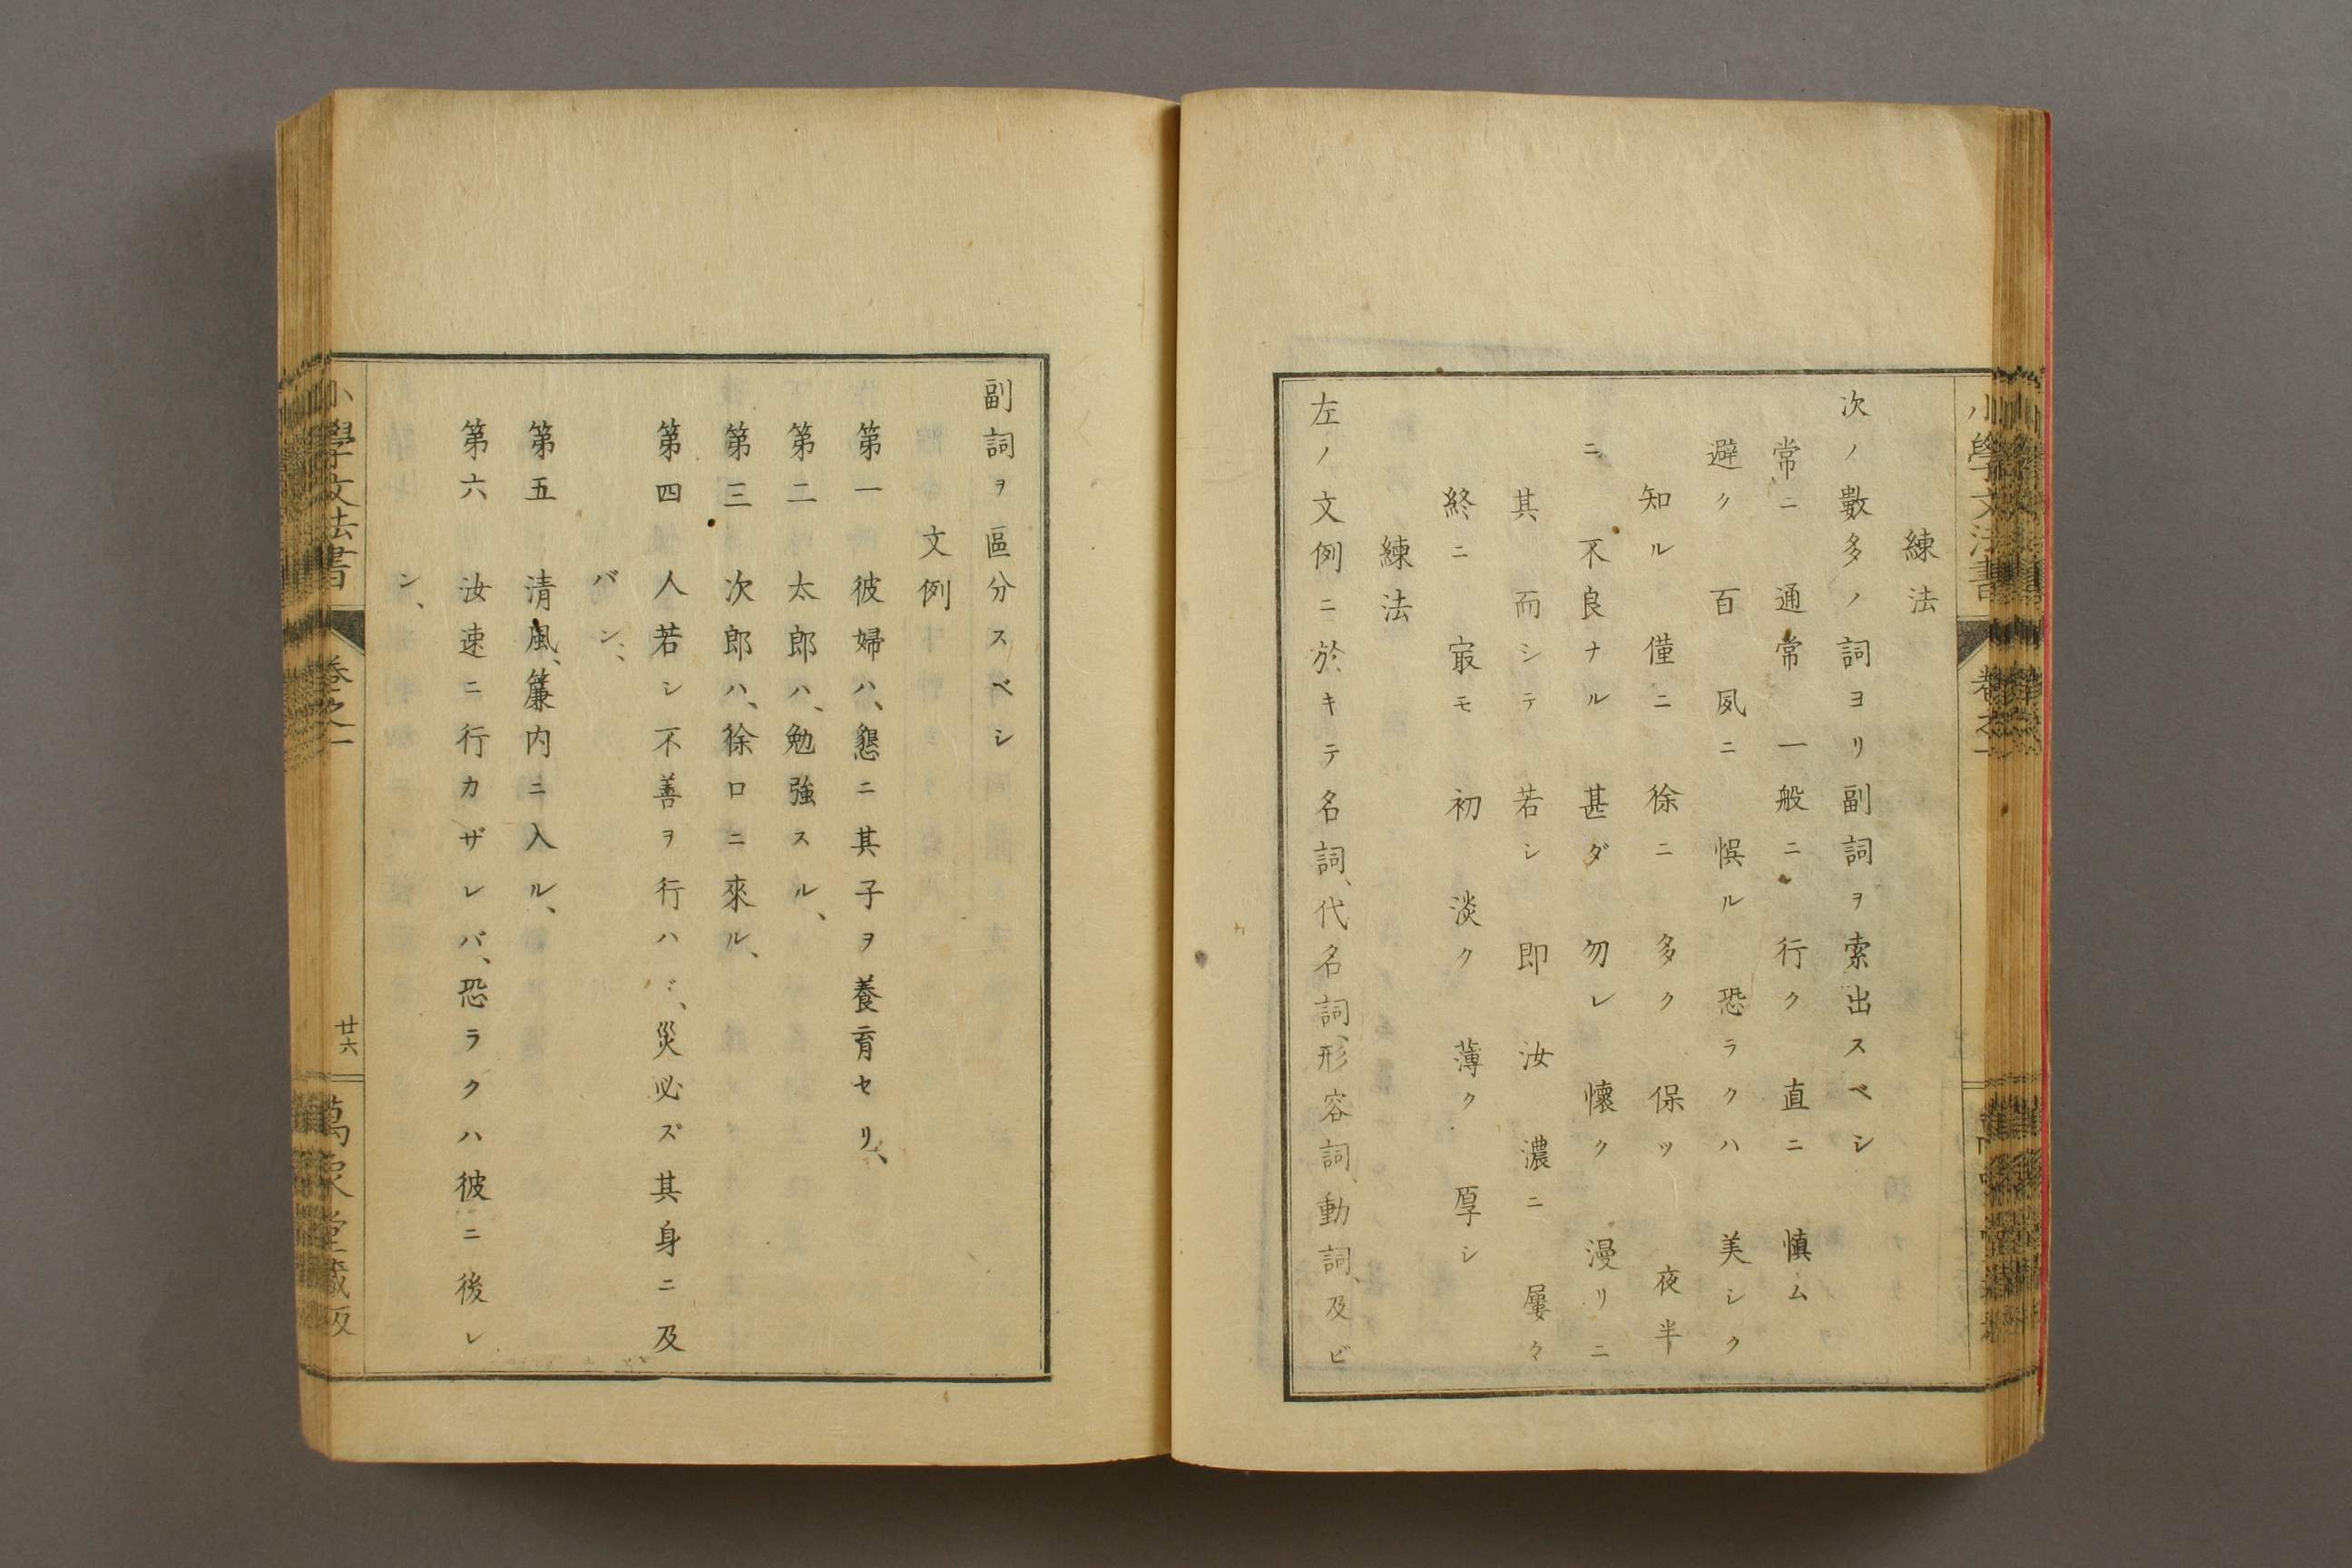 練法
次ノ數多ノ詞ヨリ副詞ヲ索出スベシ
常ニ 通常 一般ニ 行ク 直ニ 慎ム
避ク 百 夙ニ 悞ル 恐ラクハ 美シク
知ル 僅ニ 徐ニ 多ク 保ツ 夜半
ニ 不良ナル 甚ダ 勿レ 懷ク 漫リニ
其 而シテ 若シ 即 汝 濃ニ 屢々
終ニ 㝡モ 初 淡ク 薄ク 厚シ
練法
左ノ文例ニ於キテ名詞、代名詞、形容詞、動詞、及ビ
副詞ヲ區分スベシ
文例
第一 彼婦ハ、懇ニ其子ヲ養育セリ、
第二 太郎ハ、勉強スル、
第三 次郎ハ、徐ロニ來ル、
第四 人若シ不善ヲ行ハバ、災必ズ其身ニ及
バン、
第五 清風、簾内ニ入ル、
第六 汝速ニ行カザレバ、恐ラクハ彼ニ後レ
ン、
小學文法書 卷之一 廿六 萬象堂藏版